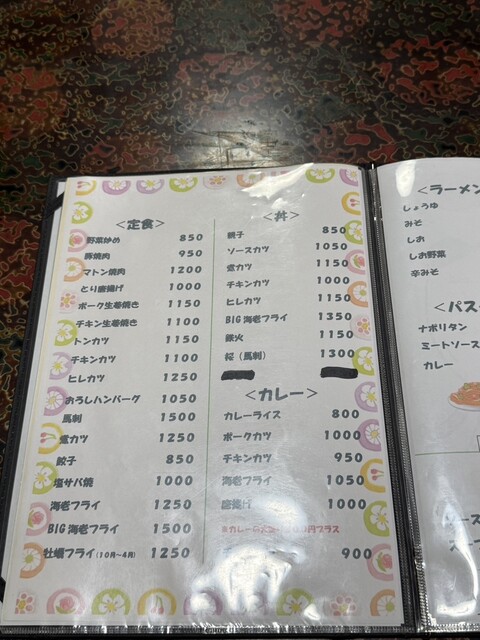 <定食>
野菜炒め 850
豚焼肉 950
マトン焼肉 1200
とり唐揚げ 1000
ポーク生姜焼き 1150
チキン生姜焼き 1100
トンカツ 1150
チキンカツ 1100
ヒレカツ 1250
おろしハンバーグ 1050
馬刺 1500
煮カツ 1250
餃子 850
塩サバ焼 1000
海老フライ 1250
BIG海老フライ 1500
牡蠣フライ(10月~4月) 1250
<丼>
親子 850
ソースカツ 1050
煮カツ 1150
チキンカツ 1000
ヒレカツ 1150
BIG海老フライ 1350
鉄火 1150
桜(馬刺) 1300
<カレー>
カレーライス 800
ポークカツ 1000
チキンカツ 950
海老フライ 1050
唐揚げ 1000
900
<ラーメン
しょうゆ
みそ
しお
しお野菜
辛みそ
<パス
ナポリタン
ミートソース
カレー